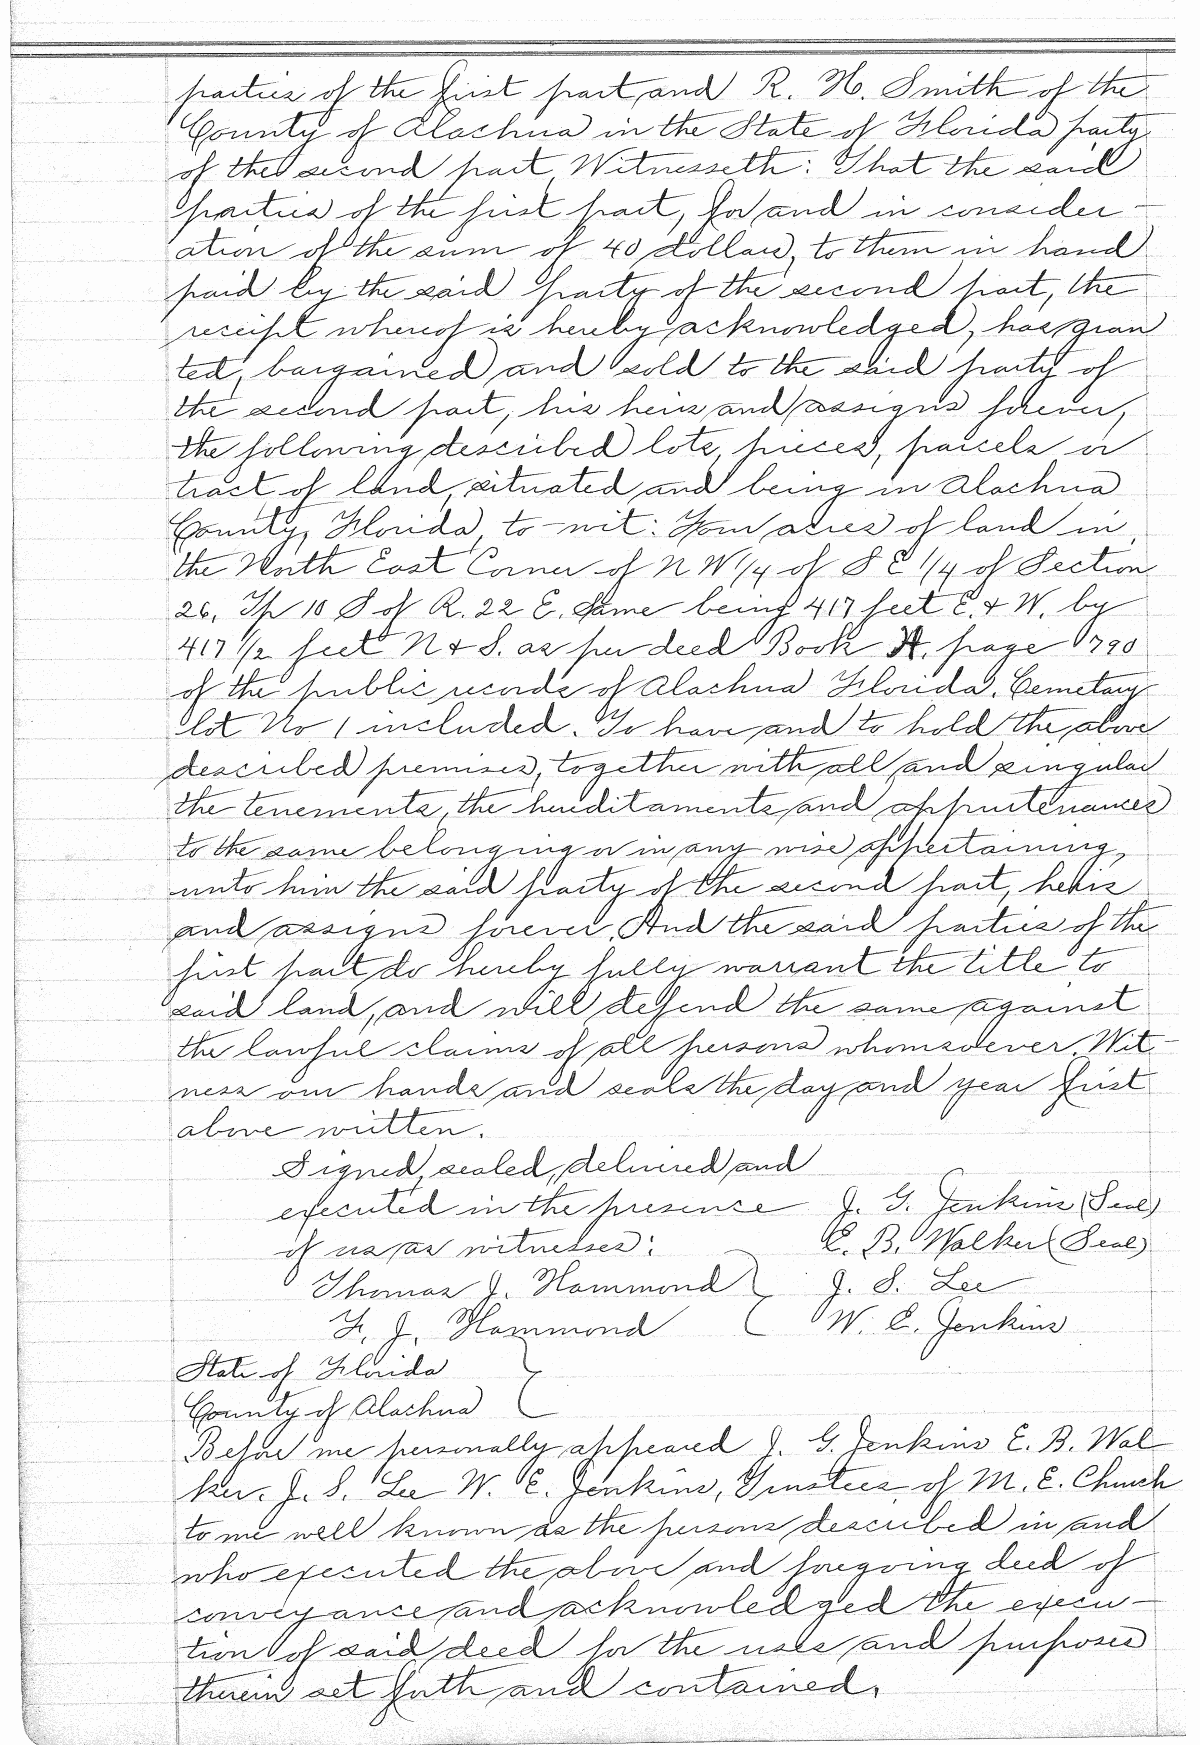 parties of the first part, and R. H. Smith of the
County of Alachua in the State of Florida party
of the second part, Witnesseth: That the said
parties of the first part, for and in consider-
ation of the sum of 40 dollars, to them in hand
paid by the said party of the second part, the
receipt whereof is hereby acknowledged, has gran
ted, bargained and sold to the said party of
the second part, his heirs and assigns forever,
the following described lots, pieces, parcels or
tract of land, situated and being in Alachua
County, Florida, to-wit: Four acres of land in
the North East Corner of N W 1/4 of S E 1/4 of Section
26, Tp 10 S of R. 22 E. Same being 417 feet E. & W. by
417 1/2 feet N & S. as per deed Book page 790
of the public records of Alachua Florida. Cemetary
lot No 1 included. To have and to hold the above
described premises, together with all and singular
the tenements, the hereditaments and appurtenances
to the same belonging or in any wise appertaining,
unto him the said party of the second part, heirs
and assigns forever. And the said parties of the
first part do hereby fully warrant the title to
said land, and will defend the same against
the lawful claims of all persons whomsoever. Wit-
ness our hands and seals the day and year first
above written.
Signed, sealed, delivered and
executed in the presence J. G. Jenkins (Seal)
of us as witnesses: E. B. Walker (Seal)
Thomas J. Hammond } J. S. Lee
F. J. Hammond W. E. Jenkins
State of Florida }
County of Alachua
Before me personally appeared J. G. Jenkins E. B. Wal-
ker. J. S. Lee W. E. Jenkins, Trustees of M. E. Church
to me well known as the persons described in and
who executed the above and foregoing deed of
conveyance and acknowledged the execu-
tion of said deed for the uses and purposes
therein set forth and contained.